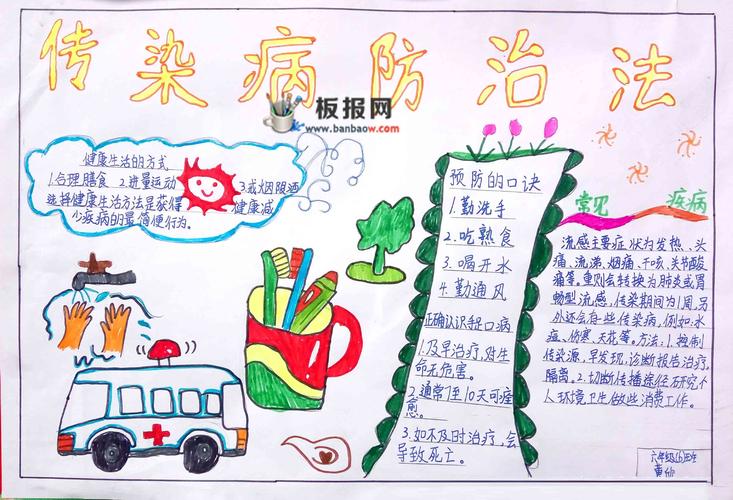 传染病防治法
板报网
www.banbaow.com
健康生活的方式
1.合理膳食 2.进量运动 3.戒烟限酒
选择健康生活方法是获得健康减
少疾病的最简便行为。
预防的口诀
1.勤洗手
2.吃熟食
3.喝开水
4.勤通风
正确认识轻口病
1.及早治疗,对生
命无危害。
2.通常7至10天可痊
愈。
3.如不及时治疗,会
导致死亡。
常见 疾病
流感主要症状为发热、头
痛、流涕、烟痛、干咳、关节酸
痛等。重则会转换为肺炎或胃
肠型流感,传染期间为1周,另
外还会有些传染病,例如:水
痘、伤寒、天花等。方法:1.控制
传染源,早发现,诊断报告治疗,
隔离。2.切断传播途径研究个
人环境卫生做些消费工作。
六年级(6)班
黄仙